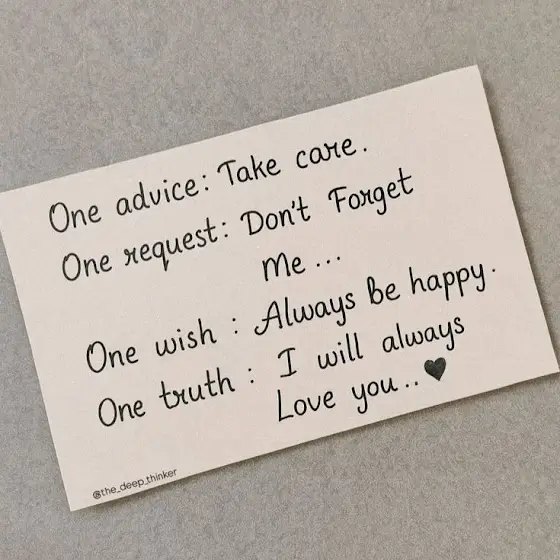 One advice: Take care.
One request: Don't Forget
Me...
One wish : Always be happy.
One truth : I will always
Love you..♥
@the_deep_thinker